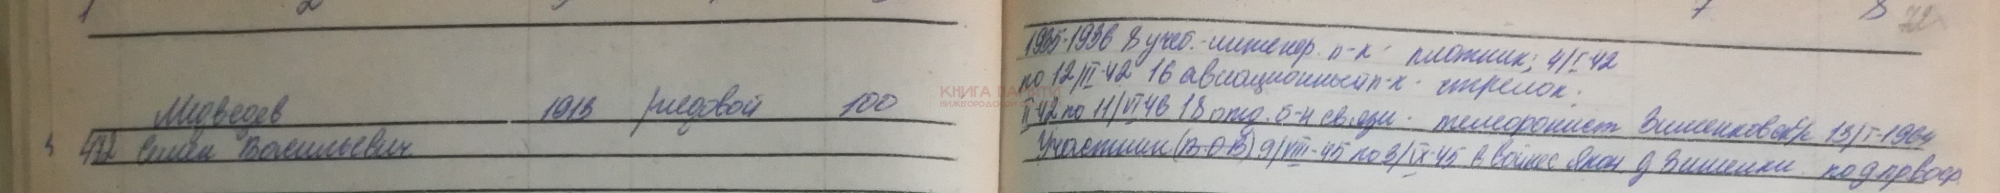 1 2 7 8 72
1935-1936 8 учеб.-инженер. п-к плотник; 4/I-42
по 12/III-42 16 авиационный п-к стрелок.
КНИГА ПАМЯТИ
НИЖЕГОРОДСКОЙ
Медведев 1913 рядовой 100
II-42 по 11/VI-46 18 отд. б-н связи - телефонист
472 Семён Васильевич
Участник (В.О.В) 9/VIII-45 по 3/IX-45 в войне Япон д Вишенки